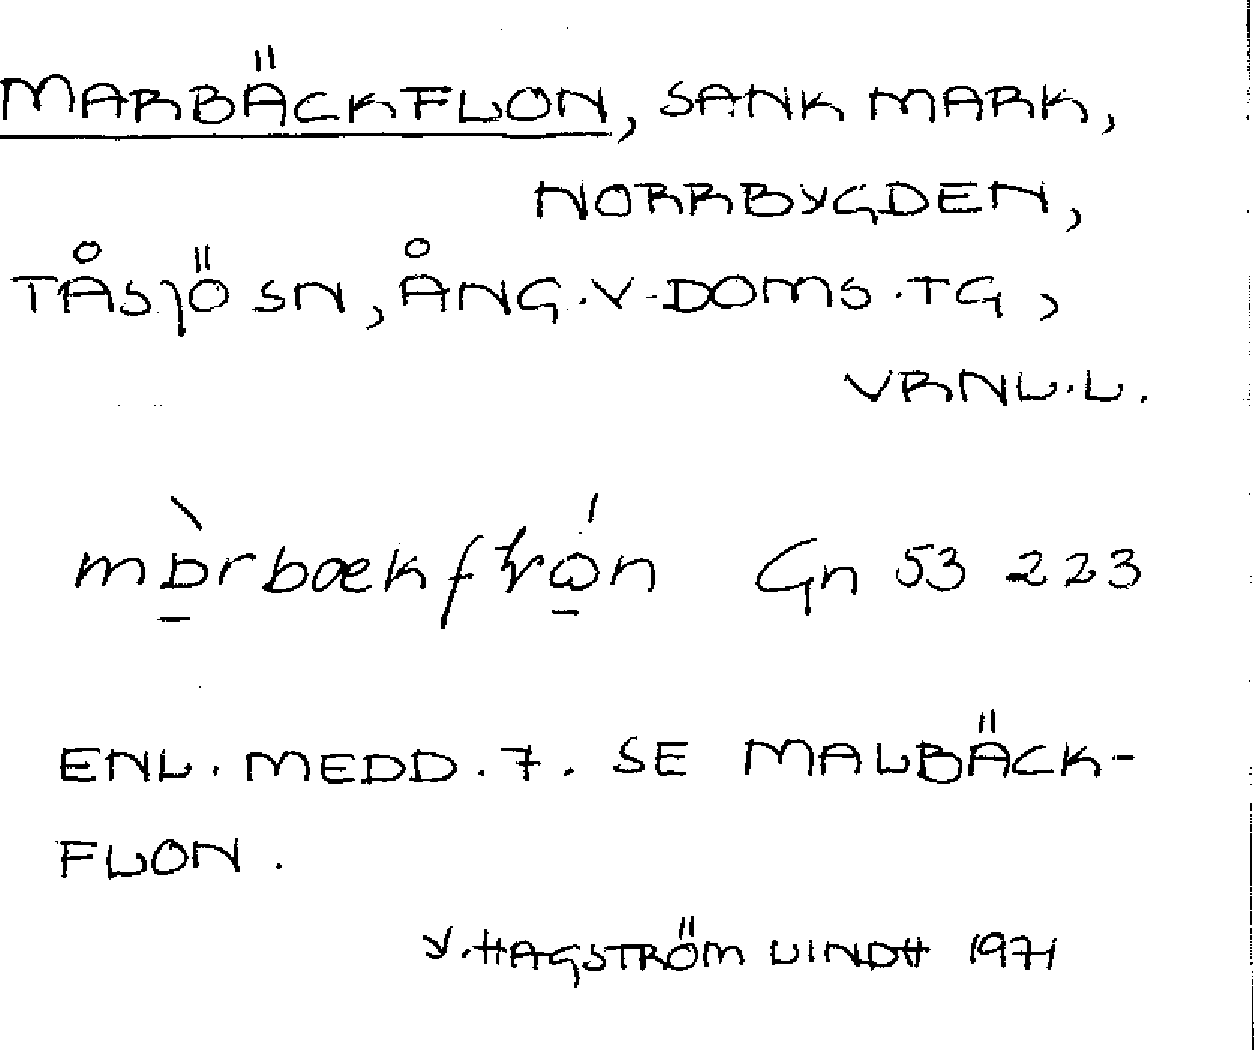 MARBÄCKFLON, SANK MARK,
NORRBYGDEN,
TÅSJÖ SN, ÅNG.V.DOMS.TG,
VRNL.L.
Gn 53 223
ENL. MEDD. 7. SE MALBÄCK-
FLON.
Y. HAGSTRÖM LINDH 1971